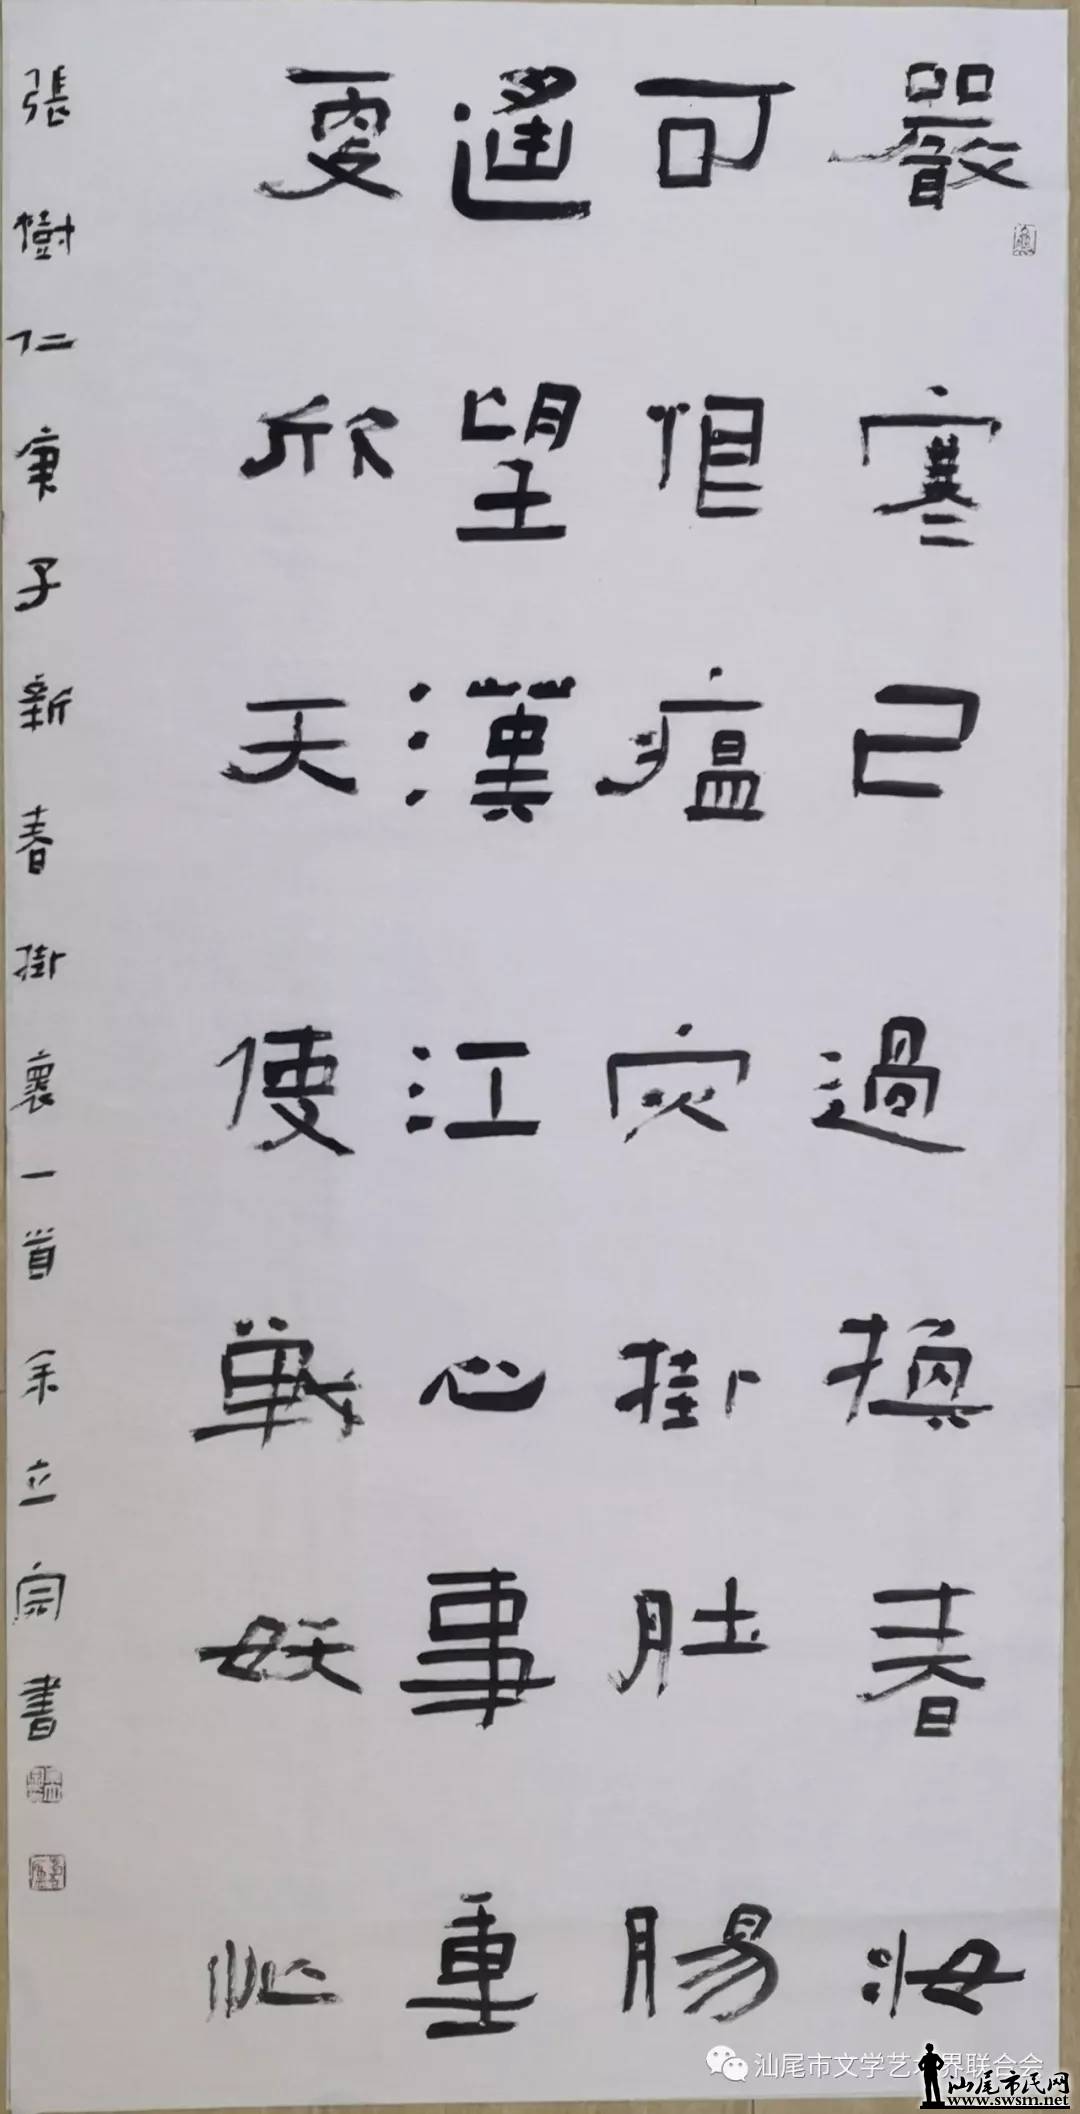 嚴寒已過換春妝
可恨瘟灾掛肚腸
遙望漢江心事重
更欣天使戰妖忙
張樹仁庚子新春掛褱一首余立宗書
汕尾市文学艺术界联合会
汕尾市民网
www.swsm.net